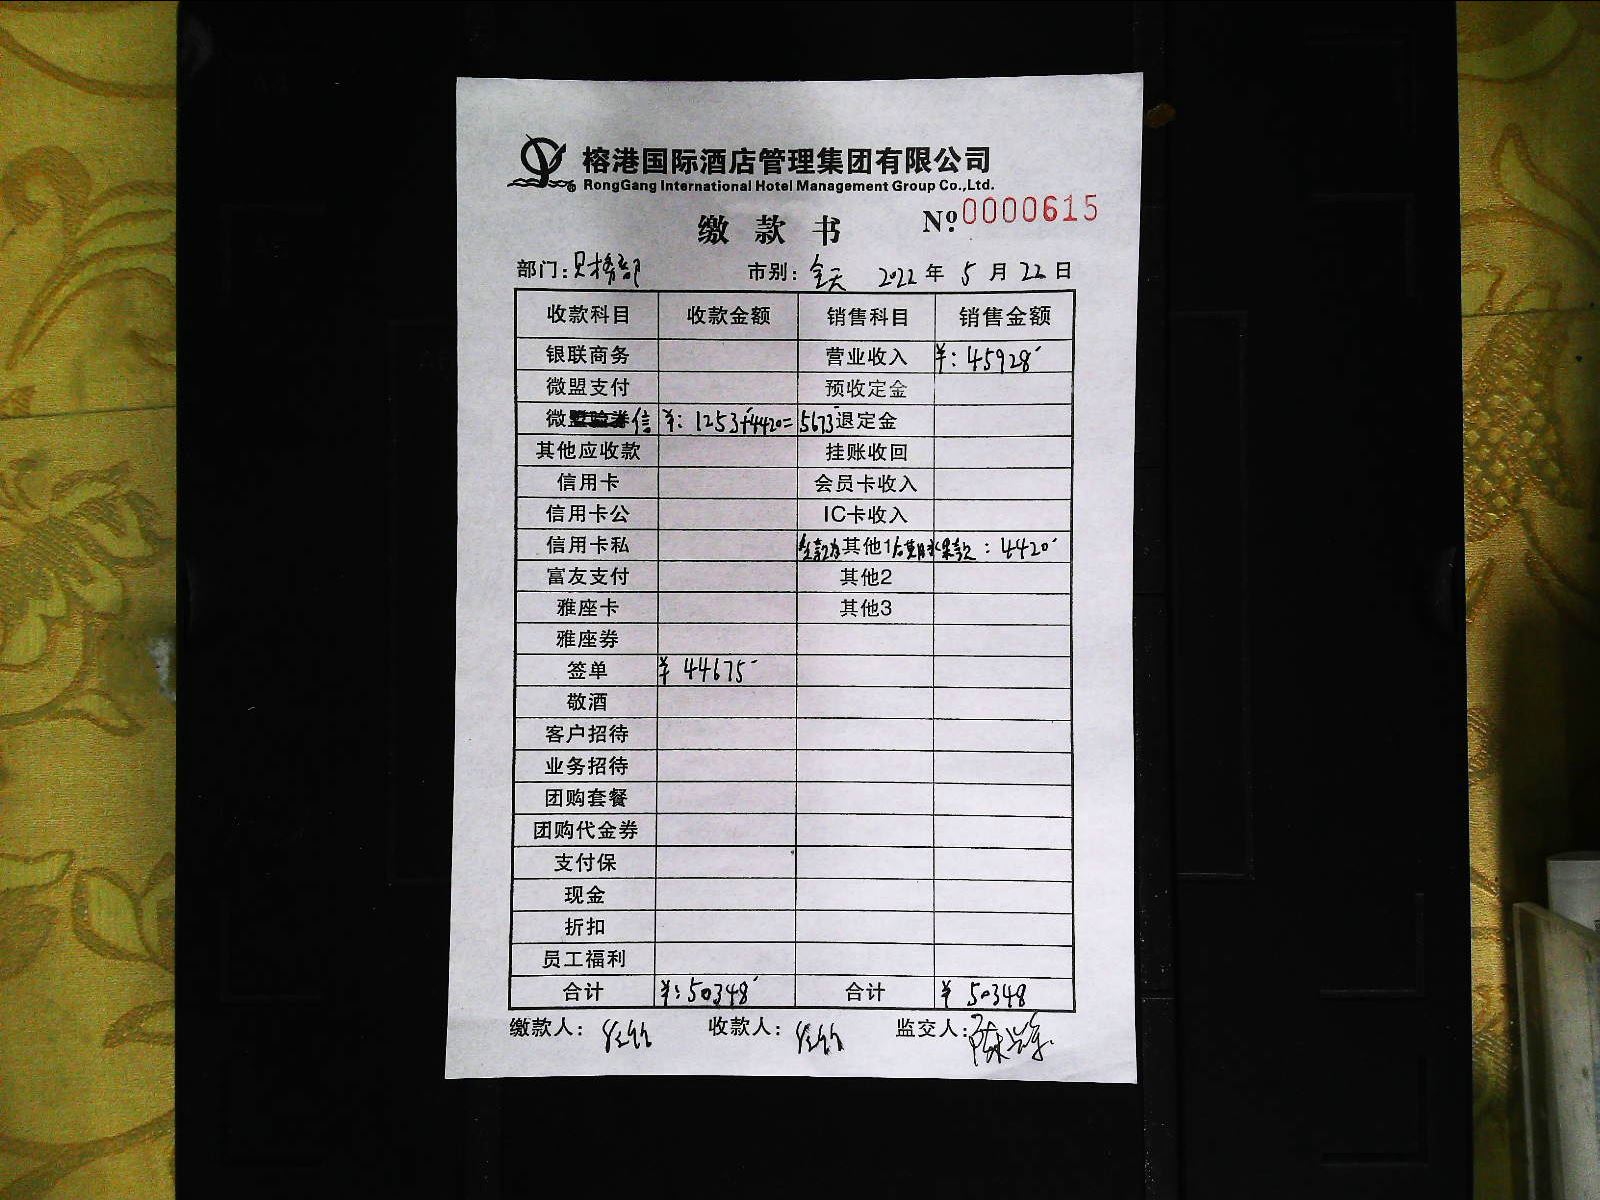 榕港国际酒店管理集团有限公司
RongGang International Hotel Management Group Co.,Ltd.
缴款书 Nº 0000615
部门：财务部 市别：全天 2022年5月22日
收款科目 收款金额 销售科目 销售金额
银联商务 营业收入 ¥：45928
微盟支付 预收定金
微信 ¥：1253+4420=5673 退定金
其他应收款 挂账收回
信用卡 会员卡收入
信用卡公 IC卡收入
信用卡私 其他1 ：4420
富友支付 其他2
雅座卡 其他3
雅座券
签单 ¥ 44675
敬酒
客户招待
业务招待
团购套餐
团购代金券
支付保
现金
折扣
员工福利
合计 ¥：50348 合计 ¥ 50348
缴款人： 收款人： 监交人：